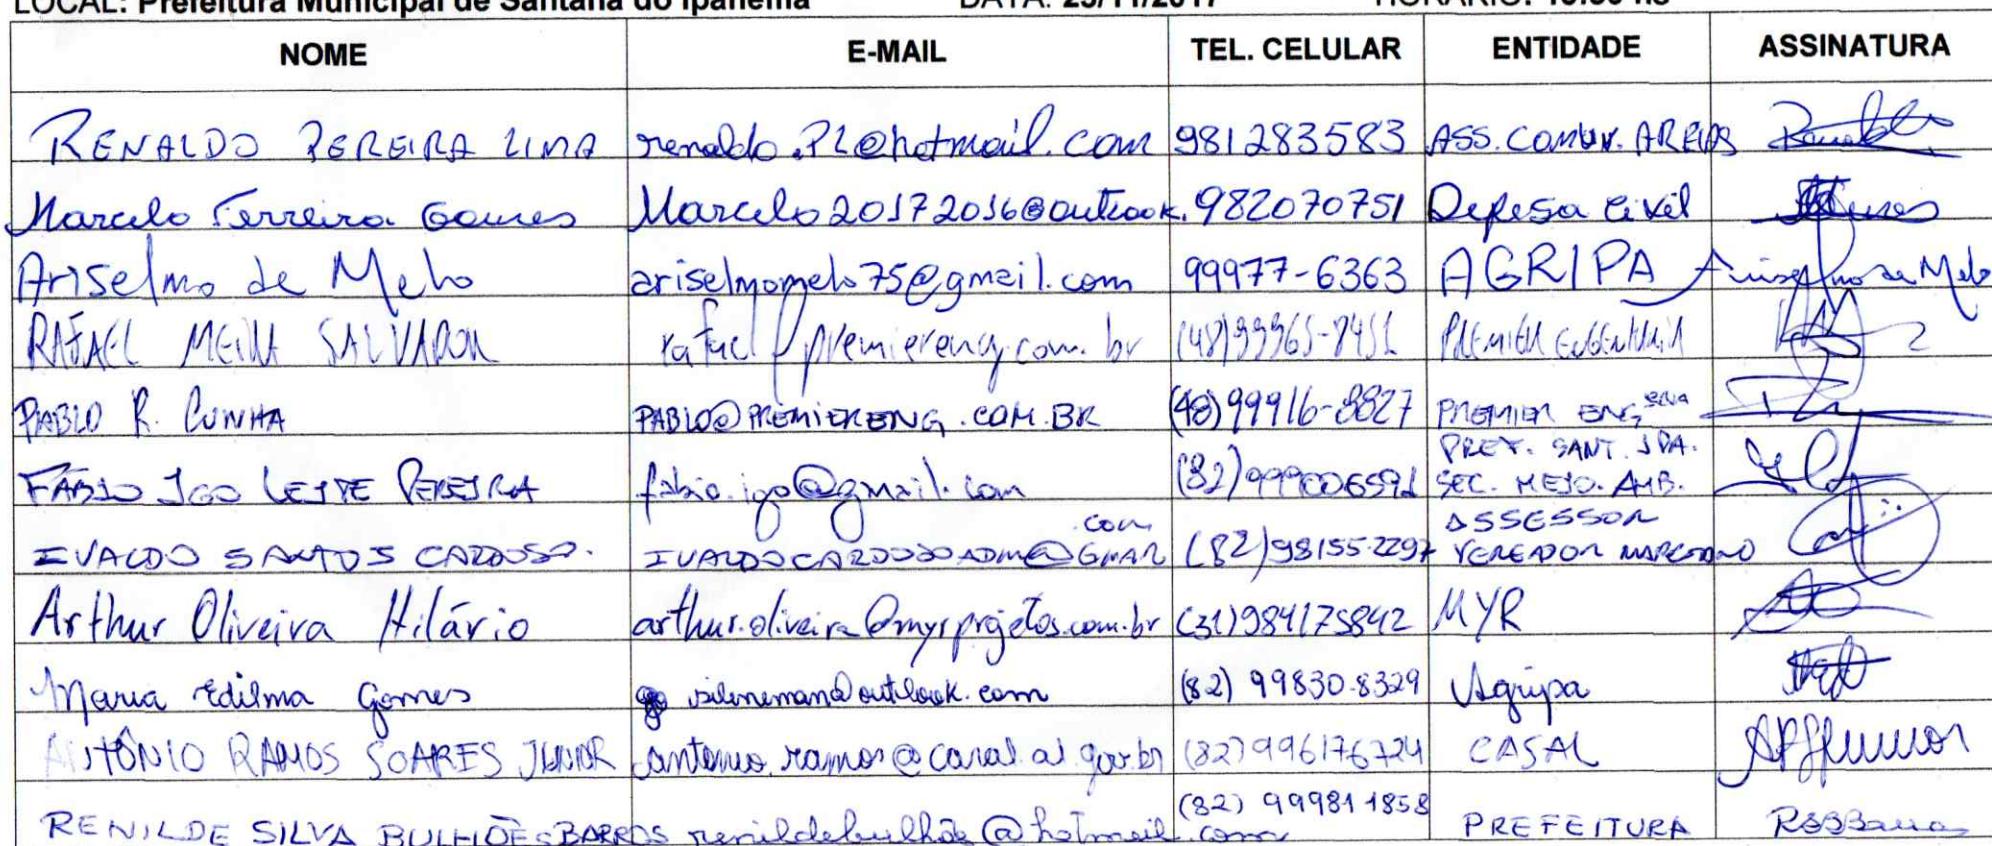 LOCAL: Prefeitura Municipal de Santana do Ipanema DATA: 23/11/2017 HORÁRIO:
NOME E-MAIL TEL. CELULAR ENTIDADE ASSINATURA
RENALDO PEREIRA LIMA renaldo.PL@hotmail.com 981283583 ASS. COMUN. AREIAS Renaldo
Marcelo Ferreira Gomes Marcelo20172016@outlook. 982070751 Defesa Civil
Ariselmo de Melo ariselmomelo75@gmail.com 99977-6363 AGRIPA Ariselmo de Melo
RAFAEL MEIRA SALVADOR rafael@premiereng.com.br (48)99965-8451 PREMIER ENGENHARIA
PABLO R. CUNHA PABLO@PREMIERENG.COM.BR (48)99916-8827 PREMIER ENG
FÁBIO IGO LEITE PEREIRA fabio.igo@gmail.com (82)999006591 PREF. SANT. IPA.
SEC. MEIO. AMB.
IVALDO SANTOS CARDOSO. IVALDOCARDOSOADM@GMAIL .com (82)98155-2297 ASSESSOR
VEREADOR
Arthur Oliveira Hilário arthur.oliveira@myrprojetos.com.br (31)984175842 MYR
Maria Edilma Gomes @outlook.com (82) 99830-8329 Agripa
ANTÔNIO RAMOS SOARES JUNIOR antonio.ramos@casal.al.gov.br (82)996176724 CASAL
RENILDE SILVA BULHÕES BARROS renildebulhões@hotmail.com (82) 999811858 PREFEITURA RSBBarros